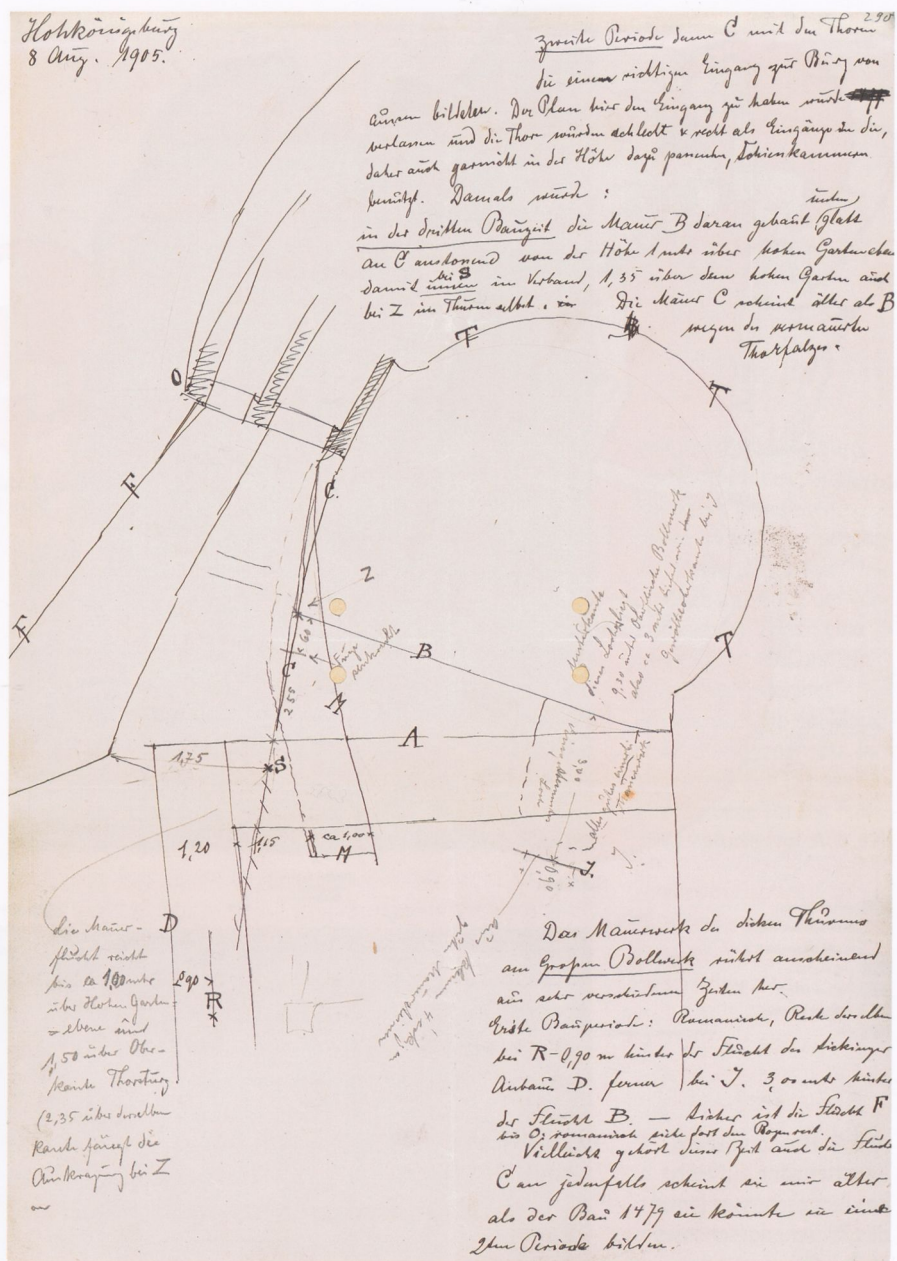 Hohkönigsburg
8 Aug. 1905.
290
zweite Periode dann C mit den Thoren
die einen richtigen Eingang zur Burg von
aussen bildeten. Der Plan hier den Eingang zu haben wurde
verlassen und die Thore wurden schlecht & recht als Eingänge in die,
daher auch garnicht in der Höhe dazu passenden, Schiesskammern
benützt. Damals wurde :
in der dritten Bauzeit die Mauer B daran gebaut, glatt
unten
an C anstossend von der Höhe 1 mtr über hohen Gartenebene
damit innen bei S im Verband, 1,35 über dem hohen Garten auch
bei Z im Thurm selbst. Die Mauer C scheint älter als B
wegen des vermauerten
Thorfalzes.
T
T
T
O
F
F
C.
Z
B
A
60
C
2 55
Fuge
senkrecht
M
1,75
S
1,20
1,15
ca 1,00
M
D
290
R
J.
J.
0,90
3,00
9,30 unter Oberfläche Bollwerk
also ca 3 mtr tiefer wie
Gewölbeunterkante bei J
die Mauer-
flucht reicht
bis ca 1,00 mtr
über Hohen Garten-
= ebene und
1,50 über Ober-
kante Thorsturz
(2,35 über derselben
Kante fängt die
Auskragung bei Z
an
Das Mauerwerk des dicken Thurmes
am Großen Bollwerk rührt anscheinend
aus sehr verschiedenen Zeiten her.
Erste Bauperiode: Romanisch, Reste derselben
bei R - 0,90 m hinter der Flucht des Sickinger
Anbaues D. ferner bei J. 3,00 mtr hinter
der Flucht B. — Sicher ist die Flucht F
bis O; romanisch siehe dort den Bogenrest.
Vielleicht gehört dieser Zeit auch die Flucht
C an jedenfalls scheint sie mir älter
als der Bau 1479 sie könnte die eine
2te Periode bilden.